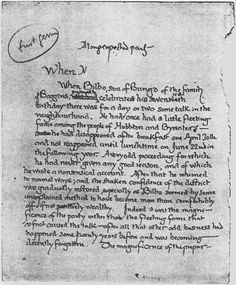 first germ
A long-expected party
When
When Bilbo, son of Bungo of the family
of Baggins, celebrated his seventieth
birthday there was for a day or two some talk in the
neighbourhood. He had once had a little fleeting
fame among the people of Hobbiton and Bywater –
he had disappeared after breakfast one April 30th
and not reappeared until lunchtime on June 22nd in
the following year. A very odd proceeding for which
he had never given any good reason, and of which
he wrote a nonsensical account. After that he returned
to normal ways; and the shaken confidence of the district
was gradually restored, especially as Bilbo seemed by some
unexplained method to have become more than comfortably
off, if not positively wealthy. Indeed it was the magni-
ficence of the party rather than the fleeting fame that
at first caused the talk – after all that other odd business had
happened some twenty years before and was becoming
decently forgotten. The magnificence of the